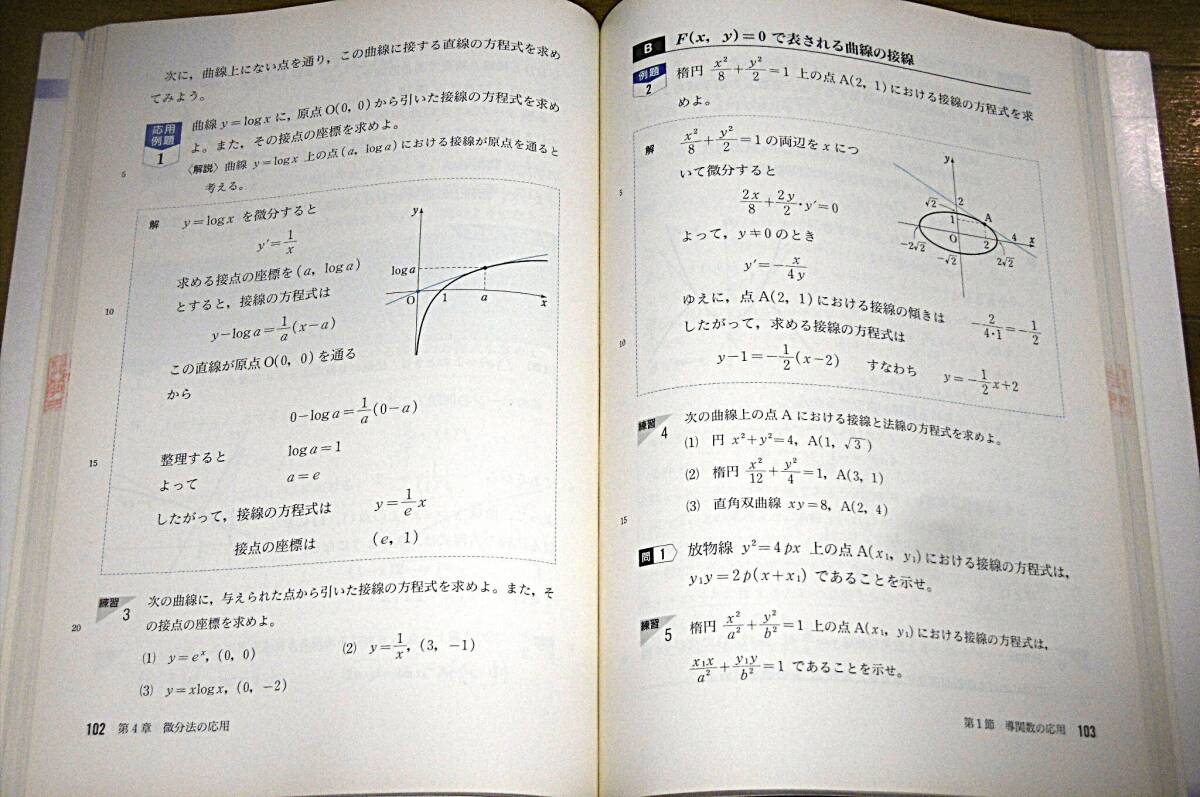 次に，曲線上にない点を通り，この曲線に接する直線の方程式を求め
てみよう。
応用
例題
1
曲線 y=log x に，原点 O(0, 0) から引いた接線の方程式を求め
よ。また，その接点の座標を求めよ。
5
〈解説〉曲線 y=log x 上の点 (a, log a) における接線が原点を通ると
考える。
解 y=log x を微分すると
y'=1/x
求める接点の座標を (a, log a)
10
とすると，接線の方程式は
y−log a=1/a(x−a)
この直線が原点 O(0, 0) を通る
から
0−log a=1/a(0−a)
15
整理すると log a=1
よって a=e
したがって，接線の方程式は y=1/e x
接点の座標は (e, 1)
y
log a
O
1
a
x
練習
3
次の曲線に，与えられた点から引いた接線の方程式を求めよ。また，そ
20
の接点の座標を求めよ。
(1) y=eˣ，(0, 0)
(2) y=1/x，(3, −1)
(3) y=xlog x，(0, −2)
102 第4章 微分法の応用
B F(x, y)=0 で表される曲線の接線
例題
2
楕円 x²/8+y²/2=1 上の点 A(2, 1) における接線の方程式を求
めよ。
解 x²/8+y²/2=1 の両辺を x につ
5
いて微分すると
2x/8+2y/2・y'=0
よって，y≠0 のとき
y'=−x/4y
ゆえに，点 A(2, 1) における接線の傾きは −2/4・1=−1/2
10
したがって，求める接線の方程式は
y−1=−1/2(x−2) すなわち y=−1/2x+2
y
√2
2
1
A
O
2
4
x
−2√2
−√2
2√2
練習
4
次の曲線上の点 A における接線と法線の方程式を求めよ。
(1) 円 x²+y²=4，A(1, √3)
(2) 楕円 x²/12+y²/4=1，A(3, 1)
(3) 直角双曲線 xy=8，A(2, 4)
15
問1 放物線 y²=4px 上の点 A(x₁, y₁) における接線の方程式は，
y₁y=2p(x+x₁) であることを示せ。
練習
5
楕円 x²/a²+y²/b²=1 上の点 A(x₁, y₁) における接線の方程式は，
x₁x/a²+y₁y/b²=1 であることを示せ。
第1節 導関数の応用 103